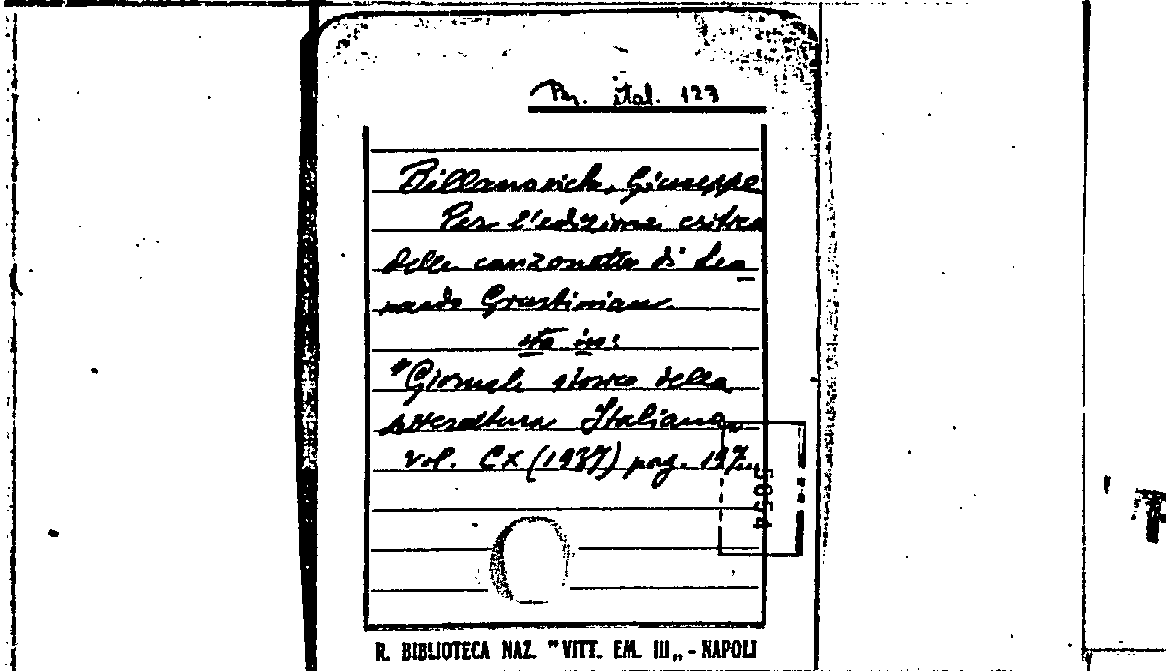 Per. ital. 123
Billanovich, Giuseppe
Per l'edizione critica
delle canzonette di Leo
nardo Giustinian
sta in:
"Giornale storico della
letteratura Italiana„
vol. CX (1937) pag. 197...
5054
R. BIBLIOTECA NAZ. "VITT. EM. III„ - NAPOLI